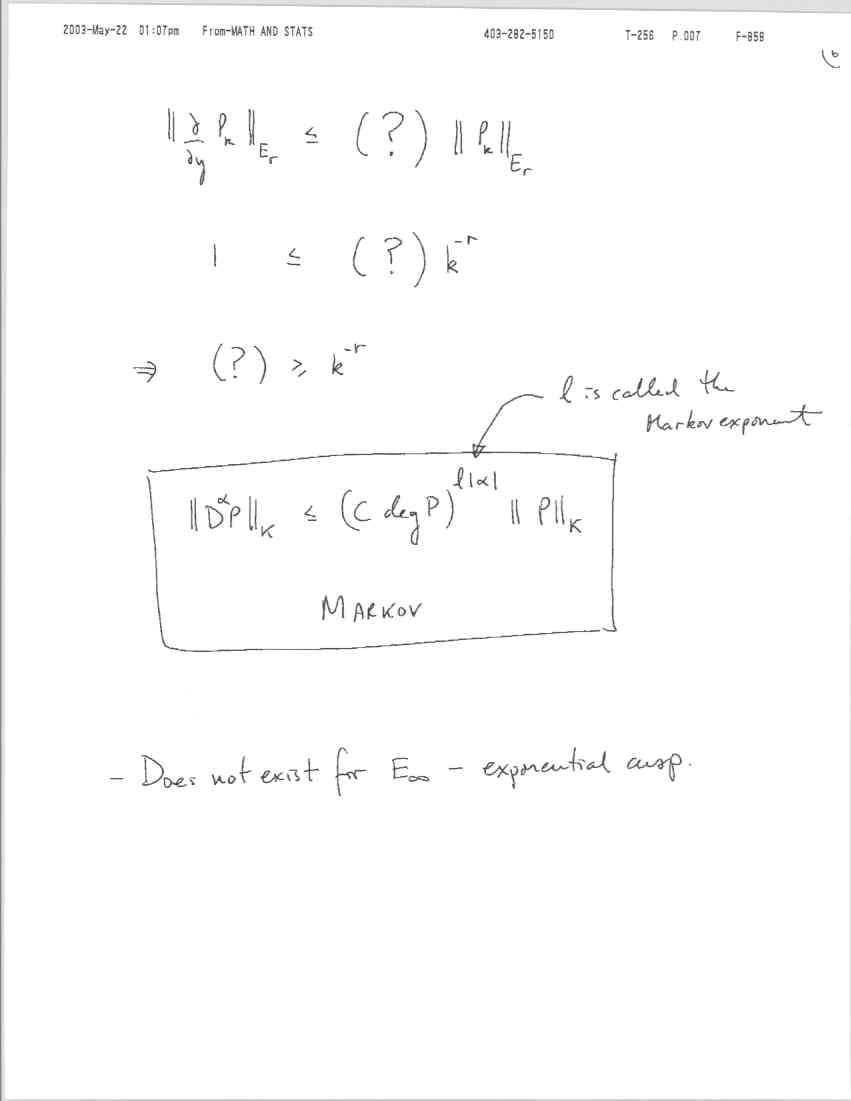 2003-May-22 01:07pm From-MATH AND STATS 403-282-5150 T-256 P.007 F-858
‖ ∂/∂y P_k ‖_{E_r} ≤ (?) ‖ P_k ‖_{E_r}
1 ≤ (?) k^{-r}
⇒ (?) ≥ k^{-r}
l is called the
Markov exponent
‖D^α P‖_K ≤ (C deg P)^{l|α|} ‖ P‖_K
MARKOV
- Does not exist for E_∞ - exponential cusp.